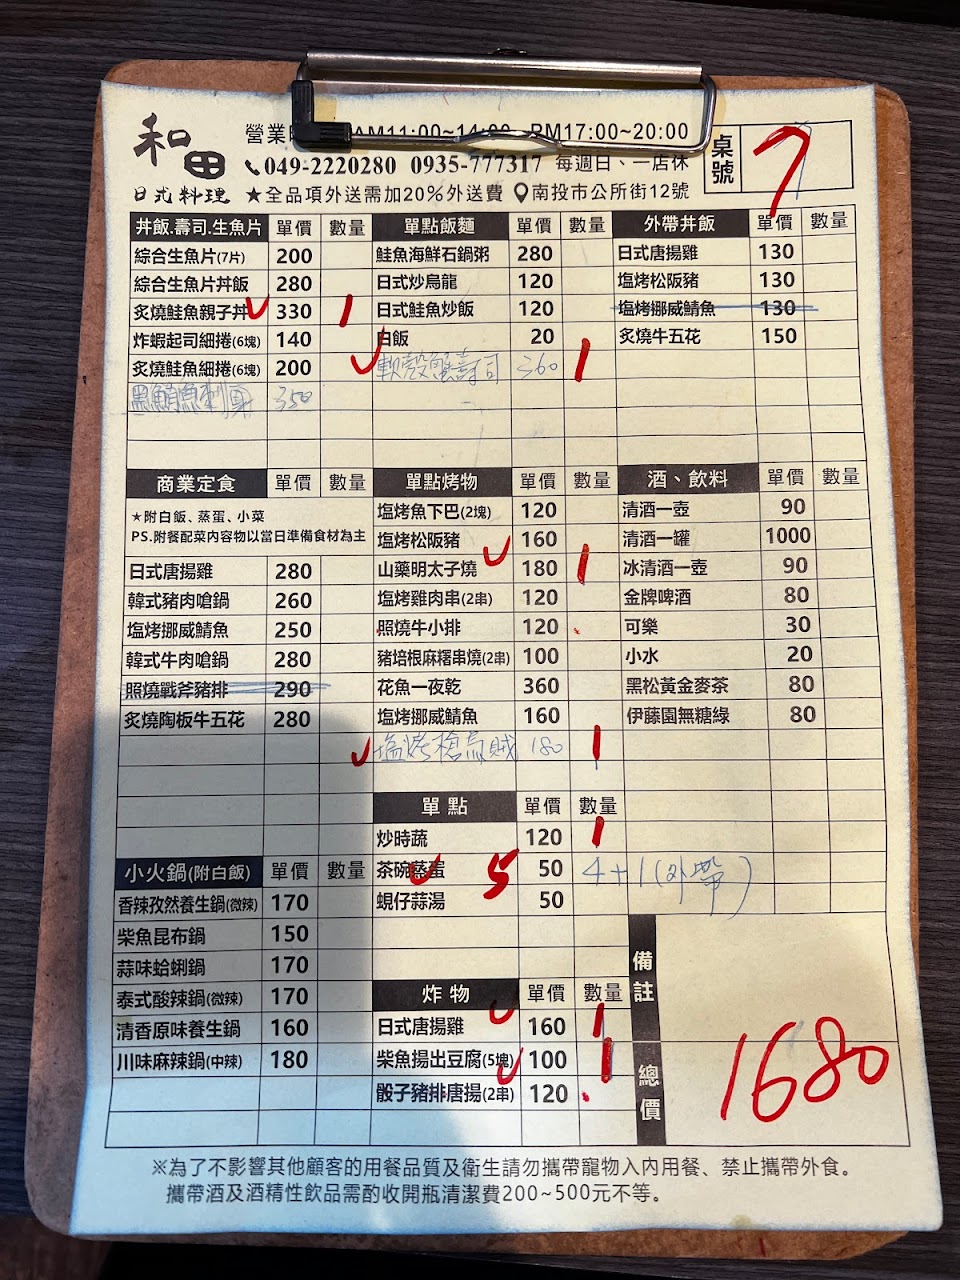 和田
日式料理
營業時 AM11:00~14:00 PM17:00~20:00
049-2220280 0935-777317 每週日、一店休
★全品項外送需加20%外送費 南投市公所街12號
桌號 7
丼飯.壽司.生魚片 單價 數量
綜合生魚片(7片) 200
綜合生魚片丼飯 280
炙燒鮭魚親子丼 330 1
炸蝦起司細捲(6塊) 140
炙燒鮭魚細捲(6塊) 200
黑鮪魚刺身 350
單點飯麵 單價 數量
鮭魚海鮮石鍋粥 280
日式炒烏龍 120
日式鮭魚炒飯 120
白飯 20
軟殼蟹壽司 360 1
外帶丼飯 單價 數量
日式唐揚雞 130
塩烤松阪豬 130
塩烤挪威鯖魚 130
炙燒牛五花 150
商業定食 單價 數量
★附白飯、蒸蛋、小菜
PS.附餐配菜內容物以當日準備食材為主
日式唐揚雞 280
韓式豬肉嗆鍋 260
塩烤挪威鯖魚 250
韓式牛肉嗆鍋 280
照燒戰斧豬排 290
炙燒陶板牛五花 280
單點烤物 單價 數量
塩烤魚下巴(2塊) 120
塩烤松阪豬 160
山藥明太子燒 180 1
塩烤雞肉串(2串) 120
照燒牛小排 120
豬培根麻糬串燒(2串) 100
花魚一夜乾 360
塩烤挪威鯖魚 160
塩烤槍烏賊 180 1
酒、飲料 單價 數量
清酒一壺 90
清酒一罐 1000
冰清酒一壺 90
金牌啤酒 80
可樂 30
小水 20
黑松黃金麥茶 80
伊藤園無糖綠 80
單點 單價 數量
炒時蔬 120 1
茶碗蒸蛋 5 50 4+1(外帶)
蜆仔蒜湯 50
小火鍋(附白飯) 單價 數量
香辣孜然養生鍋(微辣) 170
柴魚昆布鍋 150
蒜味蛤蜊鍋 170
泰式酸辣鍋(微辣) 170
清香原味養生鍋 160
川味麻辣鍋(中辣) 180
炸物 單價 數量
日式唐揚雞 160 1
柴魚揚出豆腐(5塊) 100 1
骰子豬排唐揚(2串) 120
備註
總價 1680
※為了不影響其他顧客的用餐品質及衛生請勿攜帶寵物入內用餐、禁止攜帶外食。
攜帶酒及酒精性飲品需酌收開瓶清潔費200~500元不等。